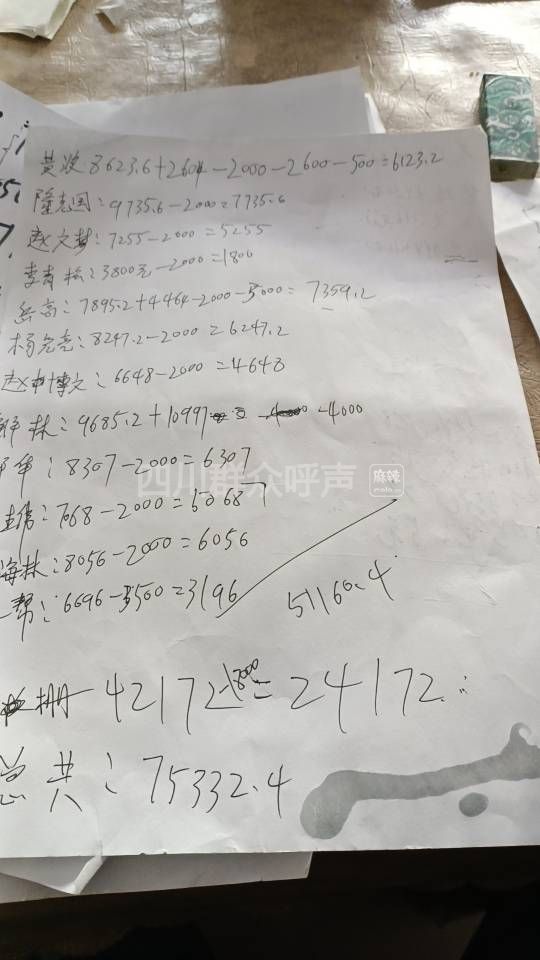 黄波 8623.6+2604-2000-2600-500=6123.2
隆志国:9735.6-2000=7735.6
赵文梦:7255-2000=5255
李青松:3800元-2000=1800
岳高:7895.2+4464-2000-3000=7359.2
杨尧亮:8247.2-2000=6247.2
赵博文:6648-2000=4648
林:9685.2+10997 -4000
华:8307-2000=6307
7068-2000=5068
海林:8056-2000=6056
一帮:6696-3500=3196
51160.4
棚 42172-18000=24172
总共:75332.4
四川群众呼声
麻辣